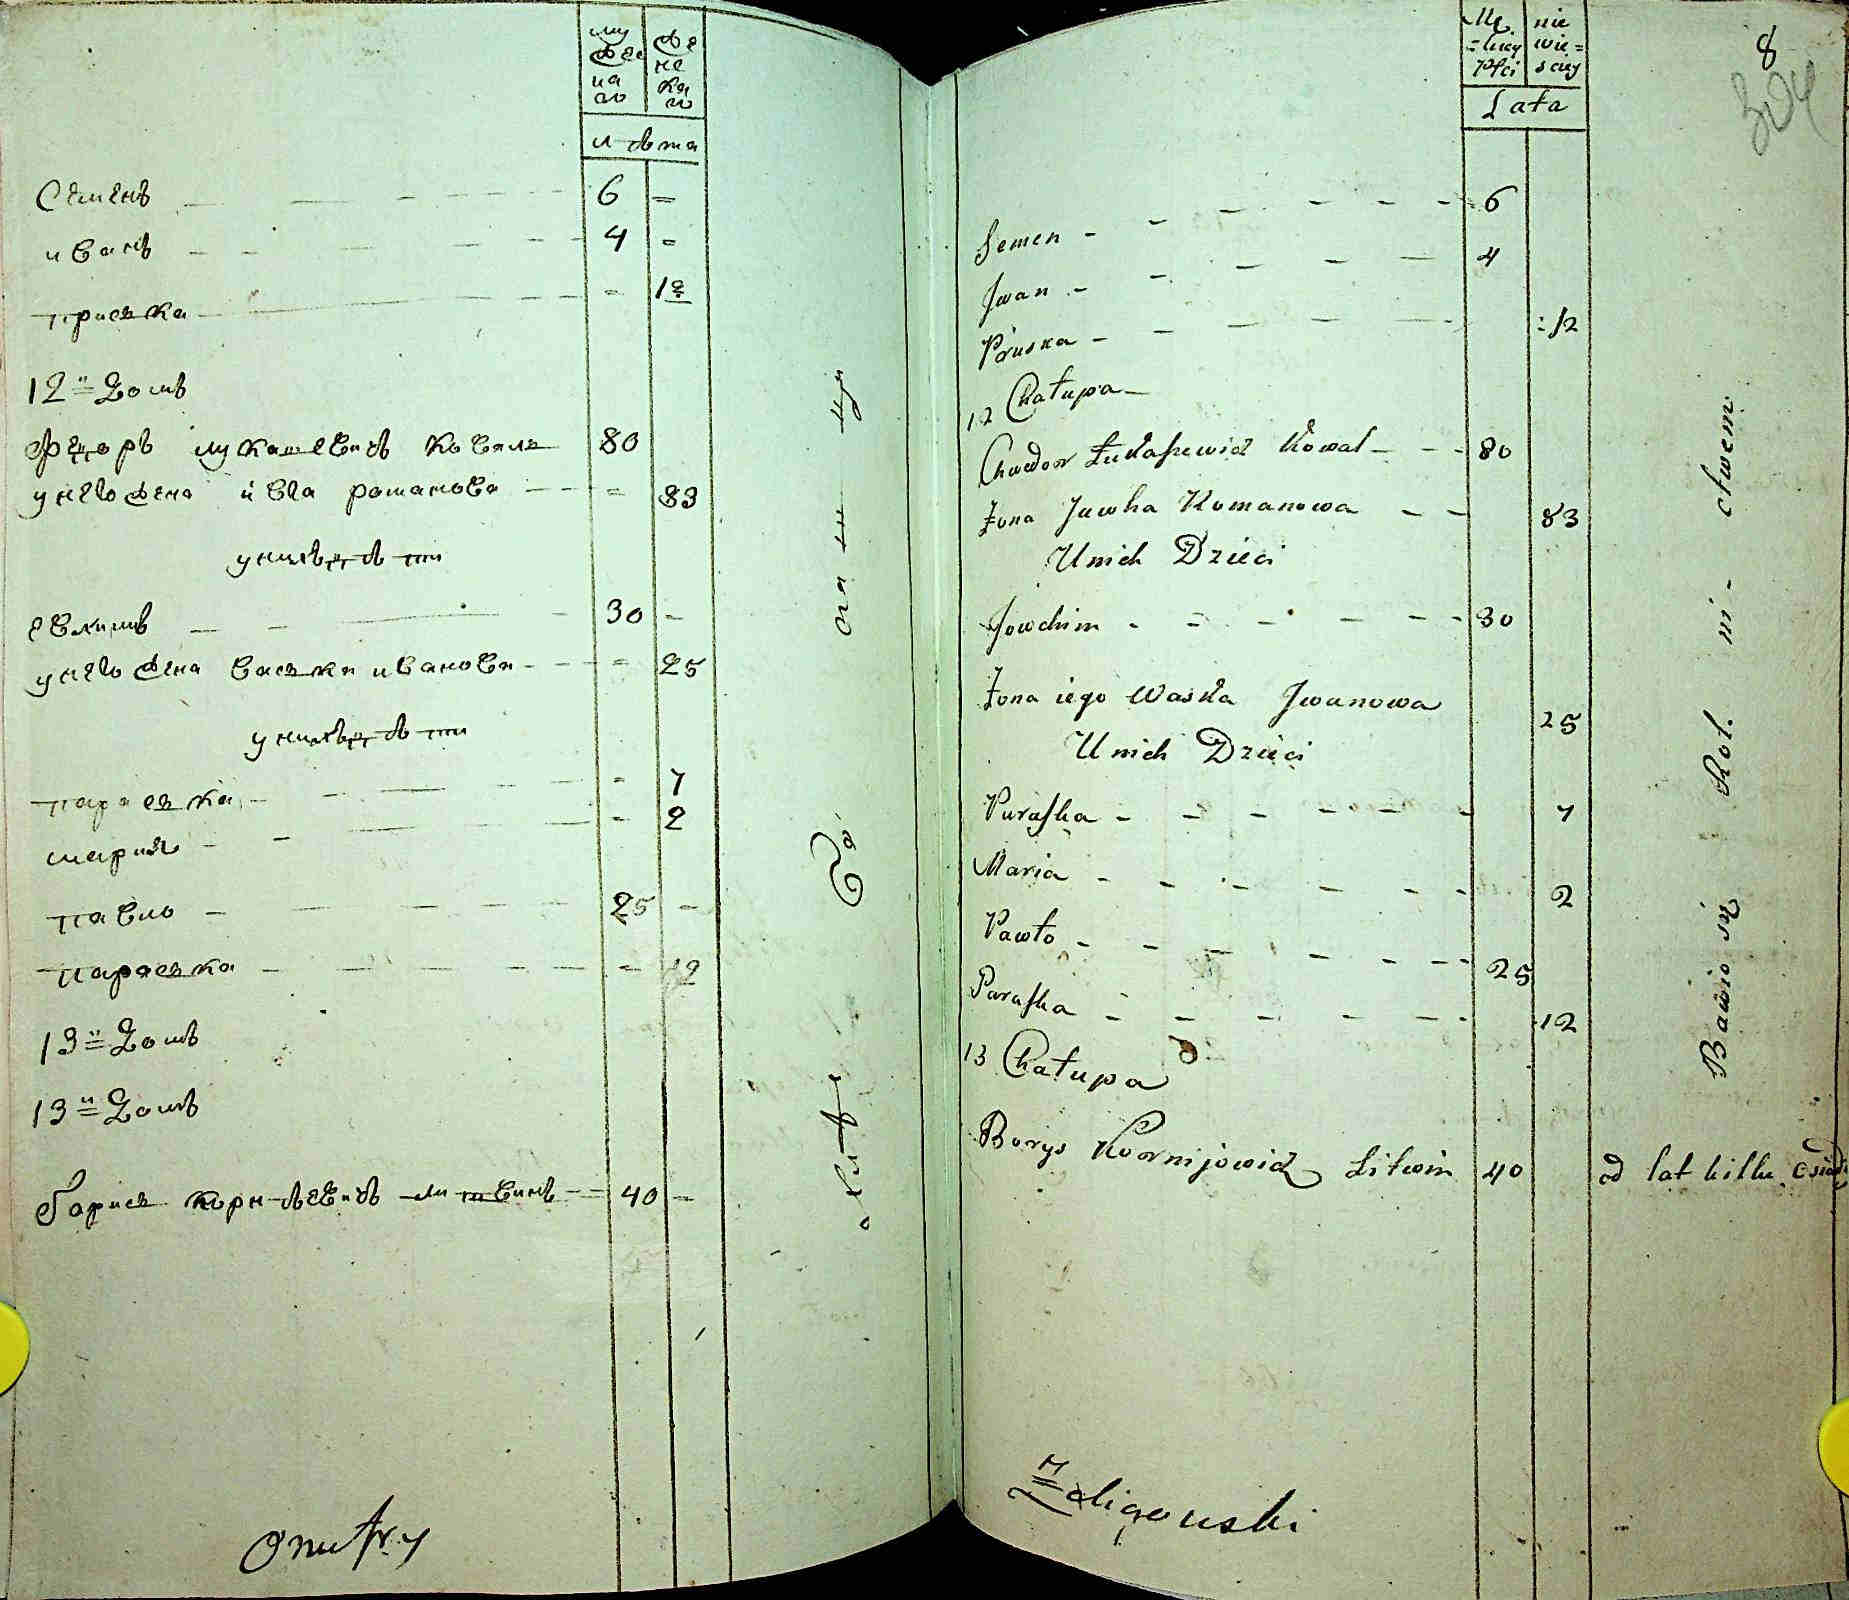 му же на го
же нс ка го
лѣта
Семенъ 6 =
иванъ 4 =
приська - 12
12 й Домъ
Федоръ лукашевичъ коваль 80
унего жена ивга романова = 83
унихъ дѣти
евхимъ 30 -
унего жена васька иванова = 25
унихъ дѣти
параська - 7
мария - 2
павло 25 -
параська - 12
13 й Домъ
13 й Домъ
Борись корнѣевичъ литвинъ 40 -
Onufry
8
304
Mę =skiey Płci
nie wie= sciey
Lata
Semen - 6
Jwan - 4
Pruska - 12
12 Chałupa
Chwedor Łukaszewicz Kowal - 80
Żona Juwha Romanowa - 83
Unich Dzieci
Jowchim - 30
Żona iego Waska Jwanowa 25
Unich Dzieci
Paraska - 7
Maria - 2
Pawło - 25
Paraska - 12
13 Chałupa
Borys Kornijowicz Litwin 40 od lat kilku
Bawio się Rol. ni- ctwem
Zaligowski